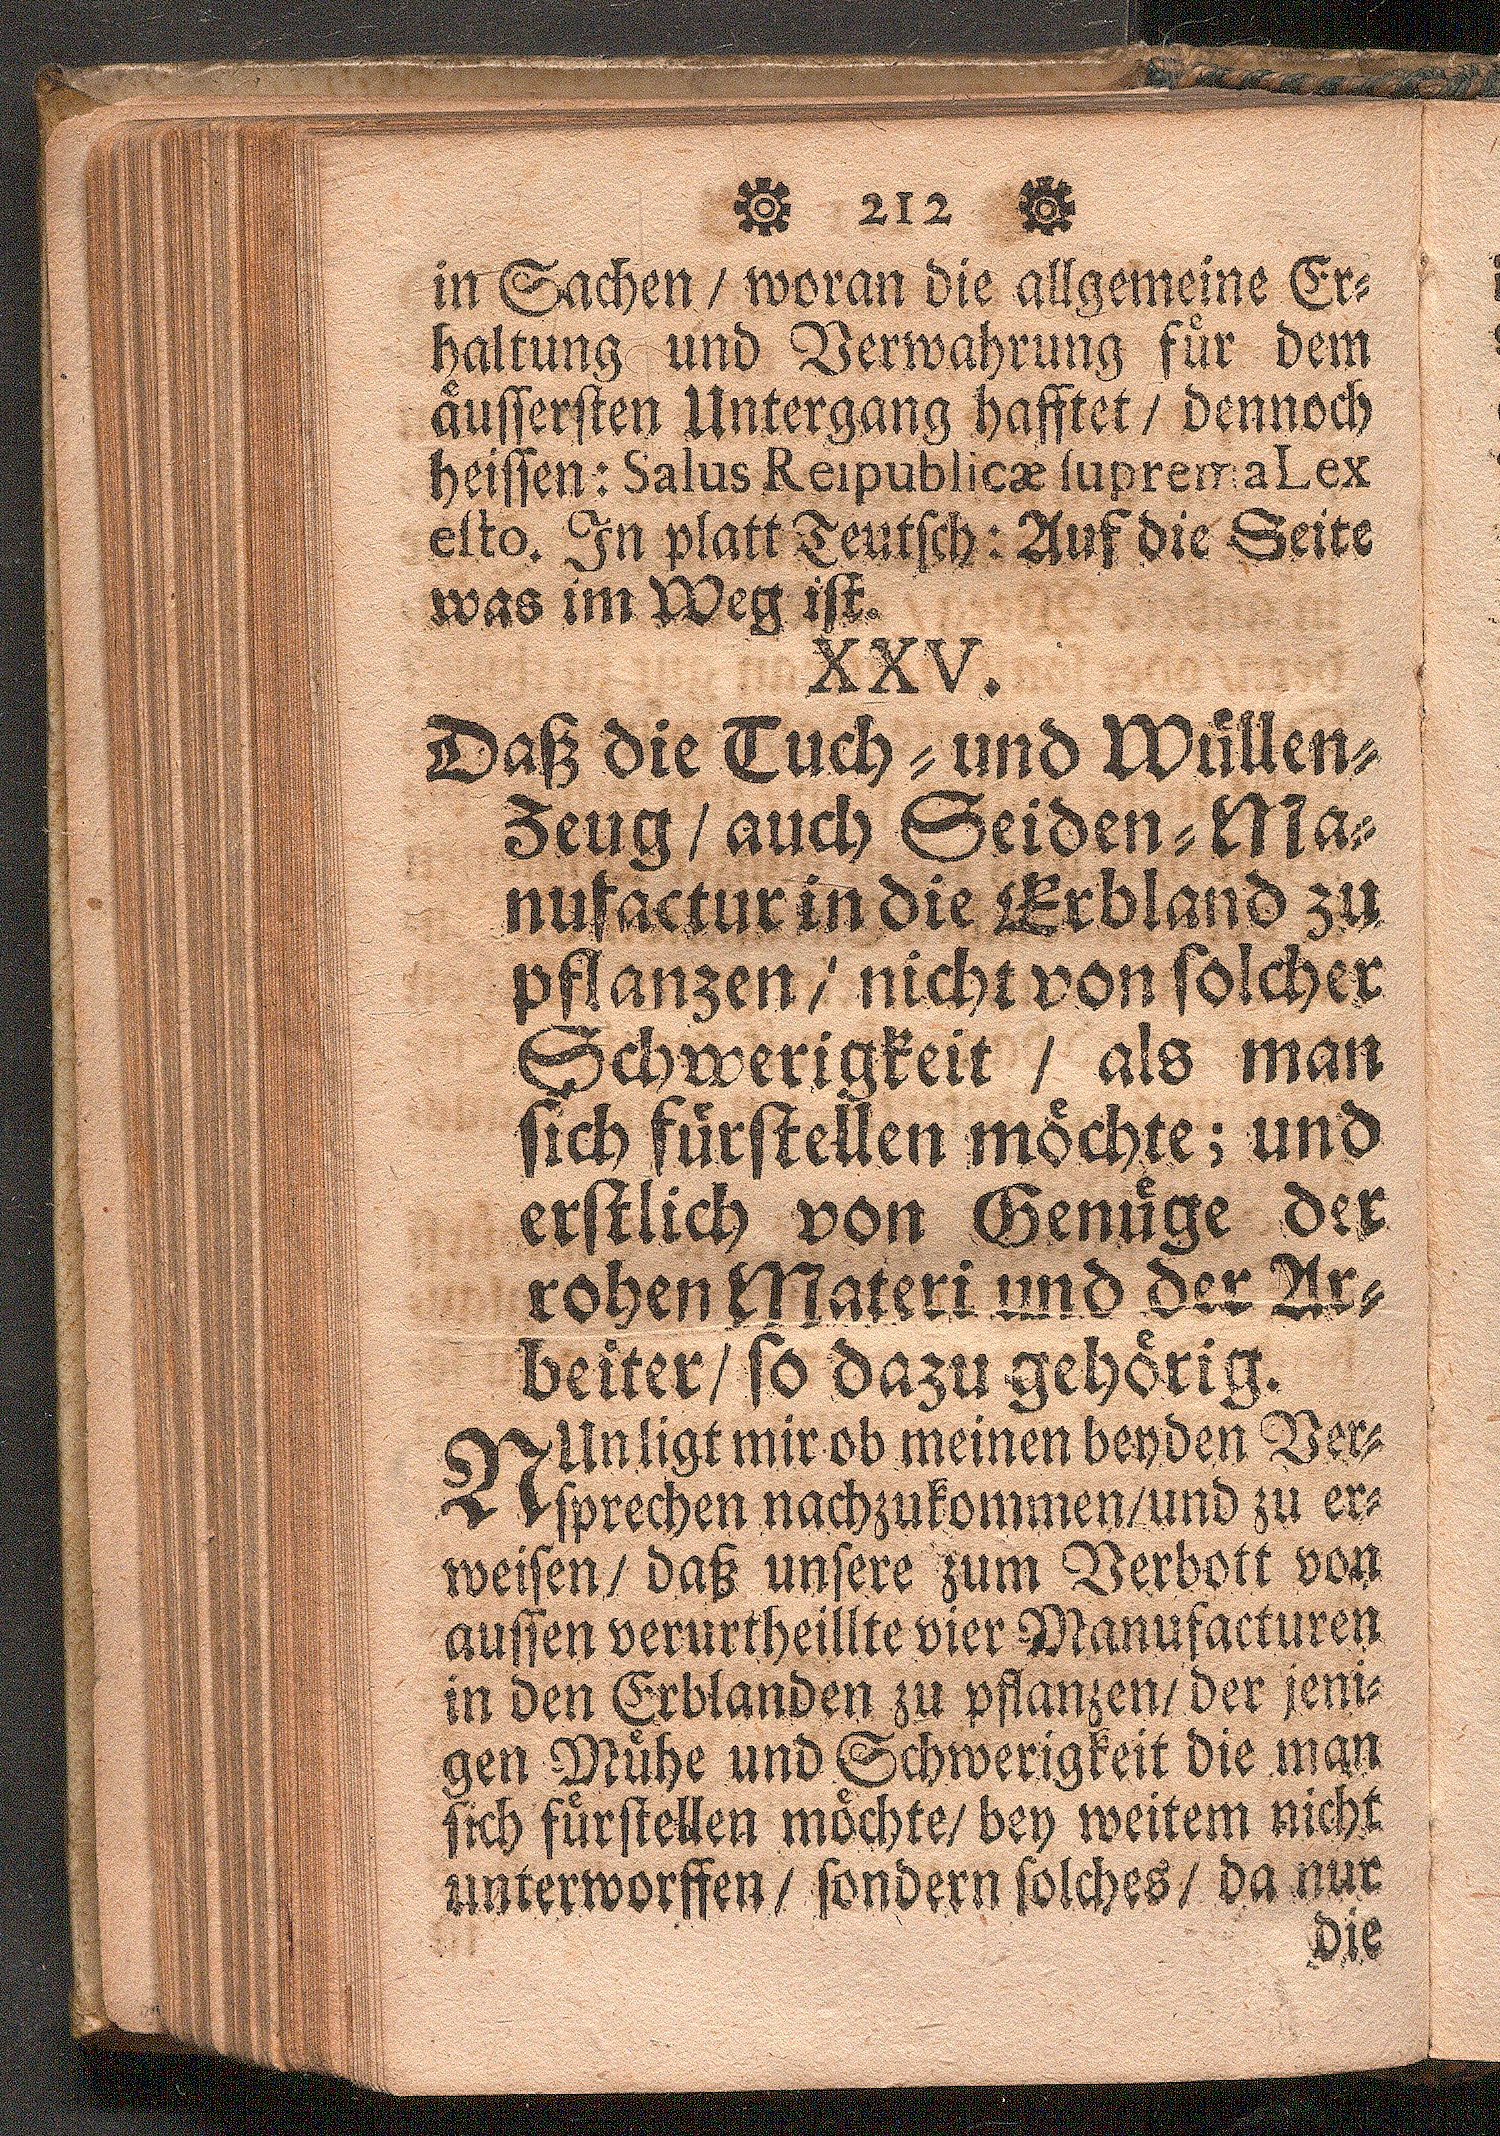 212
in Sachen / woran die allgemeine Er⸗
haltung und Verwahrung fuͤr dem
aͤuſſerſten Untergang hafftet / dennoch
heiſſen: Salus Reipublicæ ſuprema Lex
eſto. In platt Teutſch: Auf die Seite
was im Weg iſt.
XXV.
Daß die Tuch⸗ und Wuͤllen⸗
Zeug / auch Seiden⸗Ma⸗
nufactur in die Erbland zu
pflanzen / nicht von ſolcher
Schwerigkeit / als man
ſich fuͤrſtellen moͤchte; und
erſtlich von Genuͤge der
rohen Materi und der Ar⸗
beiter / ſo dazu gehoͤrig.
NUn ligt mir ob meinen beyden Ver⸗
ſprechen nachzukommen/und zu er⸗
weiſen / daß unſere zum Verbott von
auſſen verurtheillte vier Manufacturen
in den Erblanden zu pflanzen/ der jeni⸗
gen Muͤhe und Schwerigkeit die man
ſich fuͤrſtellen moͤchte/ bey weitem nicht
unterworffen / ſondern ſolches / da nur
die